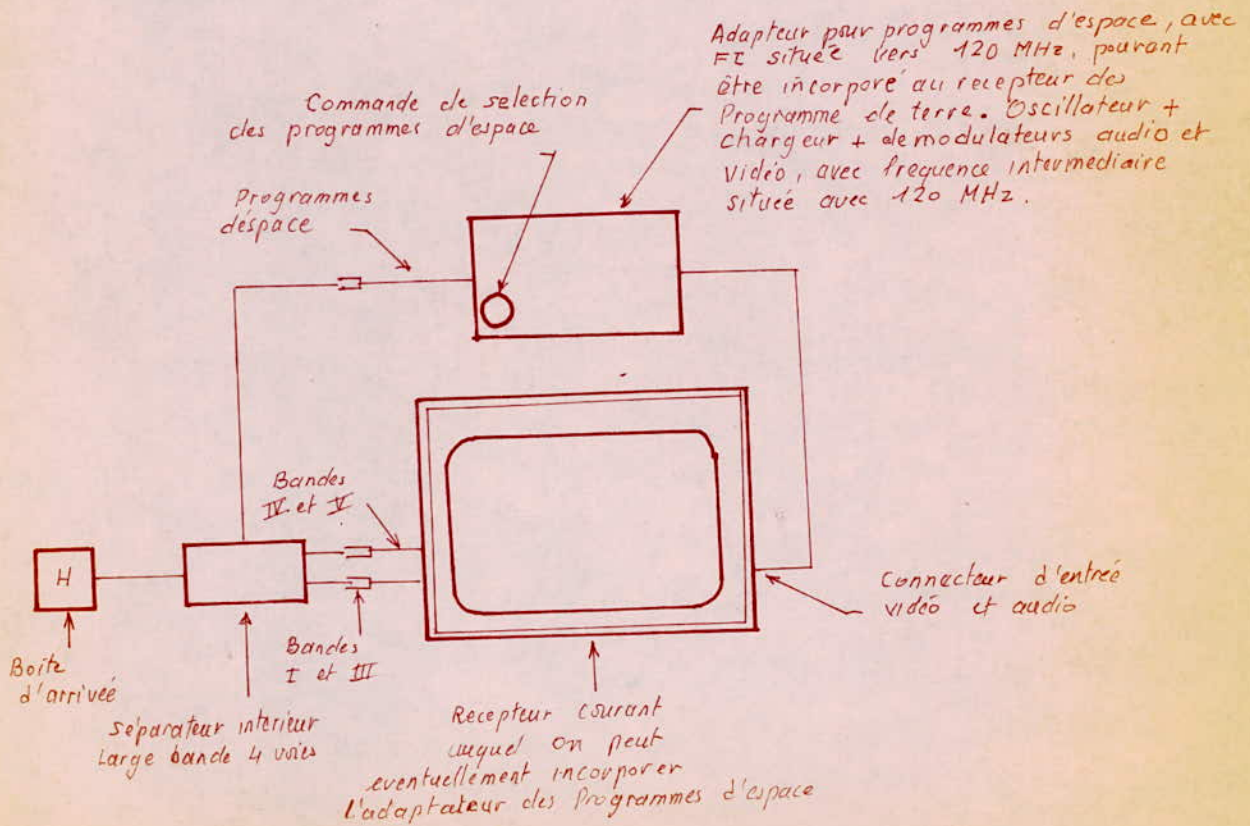 Adapteur pour programmes d'espace, avec
FI située vers 120 MHz, pouvant
être incorporé au recepteur des
Programme de terre. Oscillateur +
chargeur + demodulateurs audio et
vidéo, avec frequence intermediaire
situeé avec 120 MHz.
Commande de selection
des programmes d'espace
Programmes
d'éspace
Bandes
IV et V
H
Connecteur d'entreé
vidéo et audio
Bandes
I et III
Boite
d'arriveé
séparateur interieur
Large bande 4 voies
Recepteur courant
auquel on peut
eventuellement incorporer
l'adaptateur des Programmes d'espace